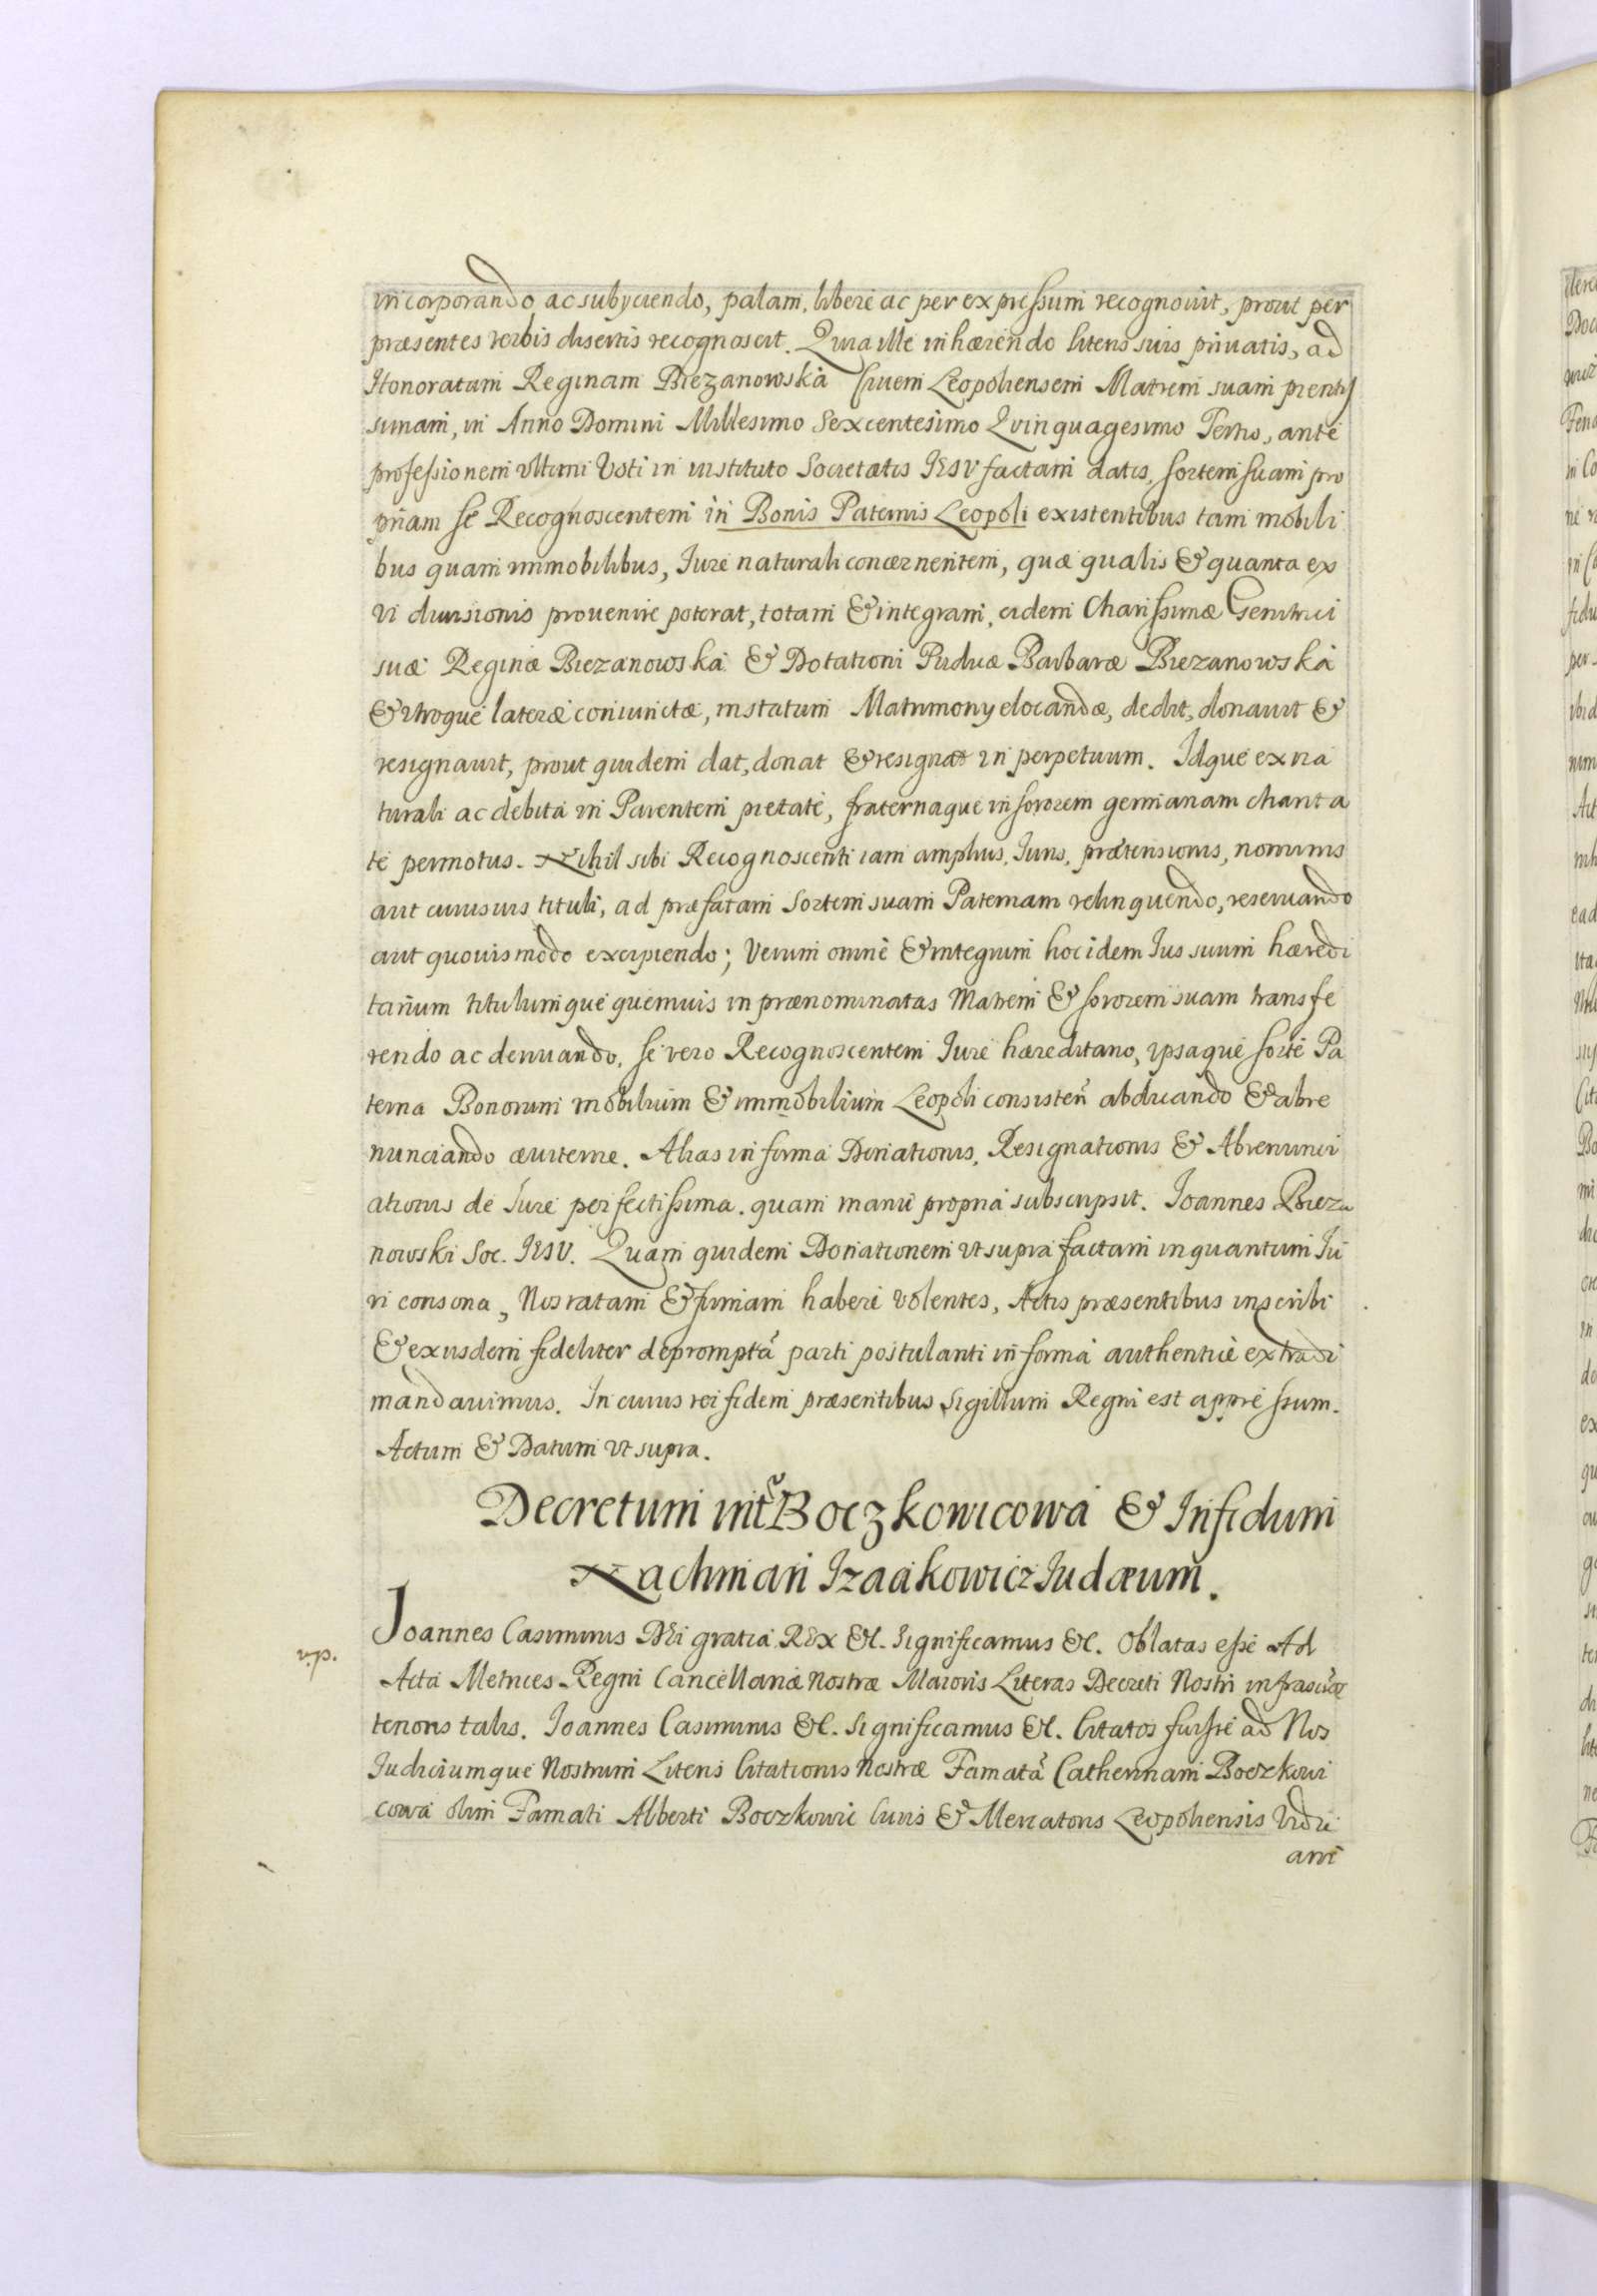 incorporando ac subÿciendo, palam, liberè ac per expressum recognouit, prout per
præsentes verbis disertis recognoscit. Quia ille inhærendo literis suis priuatis, ad
Honoratam Reginam Biezanowska Ciuem Leopoliensem Matrem suam pientis
simam, in Anno Domini Millesimo Sexcentesimo Quinquagesimo Tertio, ante
professionem vltimi Voti in instituto Societatis IESV factam datis, sortem suam pro
priam se Recognoscentem in Bonis Paternis Leopoli existentibus tam mobili
bus quam immobilibus, Iure naturali concernentem, quæ qualis & quanta ex
vi diuisionis prouenire poterat, totam & integram, eidem Charissimæ Genitrici
suæ Reginæ Biezanowska & Dotationi Piduæ Barbaræ Biezanowska
& vtroque lateræ coniunctæ, in statum Matrimonÿ elocandæ, dedit, donauit &
resignauit, prout quidem dat, donat & resignat in perpetuum. Idque ex na
turali ac debita in Parentem pietate, fraternaque in sororem germanam charita
te permotus. Nihil sibi Recognoscenti iam amplius, Iuris, prætensionis, nominis
aut cuiusuis tituli, ad præfatam sortem suam Paternam relinquendo, reseruando
aut quouis modo excipiendo; Verum omne & integrum hoc idem Ius suum hæredi
tarium titulumque quemuis in prænominatas Matrem & sororem suam transfe
rendo ac deriuando, se vero Recognoscentem Iure hæreditario, ipsaque sorte Pa
terna Bonorum mobilium & immobilium Leopoli consisten̄ abdicando & abre
nunciando æuiterne. Alias in forma Donationis, Resignationis & Abrenunci
ationis de Iure perfectissima. quam manu propria subscripsit. Joannes Bieza
nowski Soc. IESV. Quam quidem Donationem vt supra factam in quantum Iu
ri consona, Nos ratam & firmam habere volentes, Actis præsentibus inscribi
& exijsdem fideliter deprompta᷑ parti postulanti in forma authentica extradi
mandauimus. In cuius rei fidem præsentibus Sigillum Regni est appressum.
Actum & Datum vt supra.
Decretum int᷑ Boczkowicowa & Infidum
Nachman Izaakowicz Iudæum.
Joannes Casimirus DEi gratia REx &c. Significamus &c. Oblatas esse Ad
Acta Metrices Regni Cancellariæ Nostræ Maioris Literas Decreti Nostri infrascr᷑æ
tenoris talis. Joannes Casimirus &c. Significamus &c. Citatos fuisse ad Nos
Judiciumque Nostrum Literis Citationis Nostræ Famata᷑ Catherinam Boczkowi
cowa olim Famati Alberti Boczkowic Ciuis & Mercatoris Leopoliensis Vidu
am